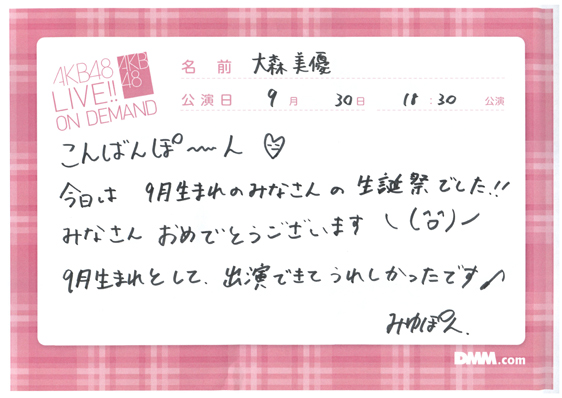 AKB48
LIVE!!
ON DEMAND
AKB
48
名前 大森美優
公演日 9月 30日 18:30 公演
こんばんぽ〜〜ん ♡
今日は 9月生まれのみなさんの 生誕祭でした!!
みなさん おめでとうございます \(^o^)ノ
9月生まれとして、出演できてうれしかったです♪
みゆぽん.
DMM.com